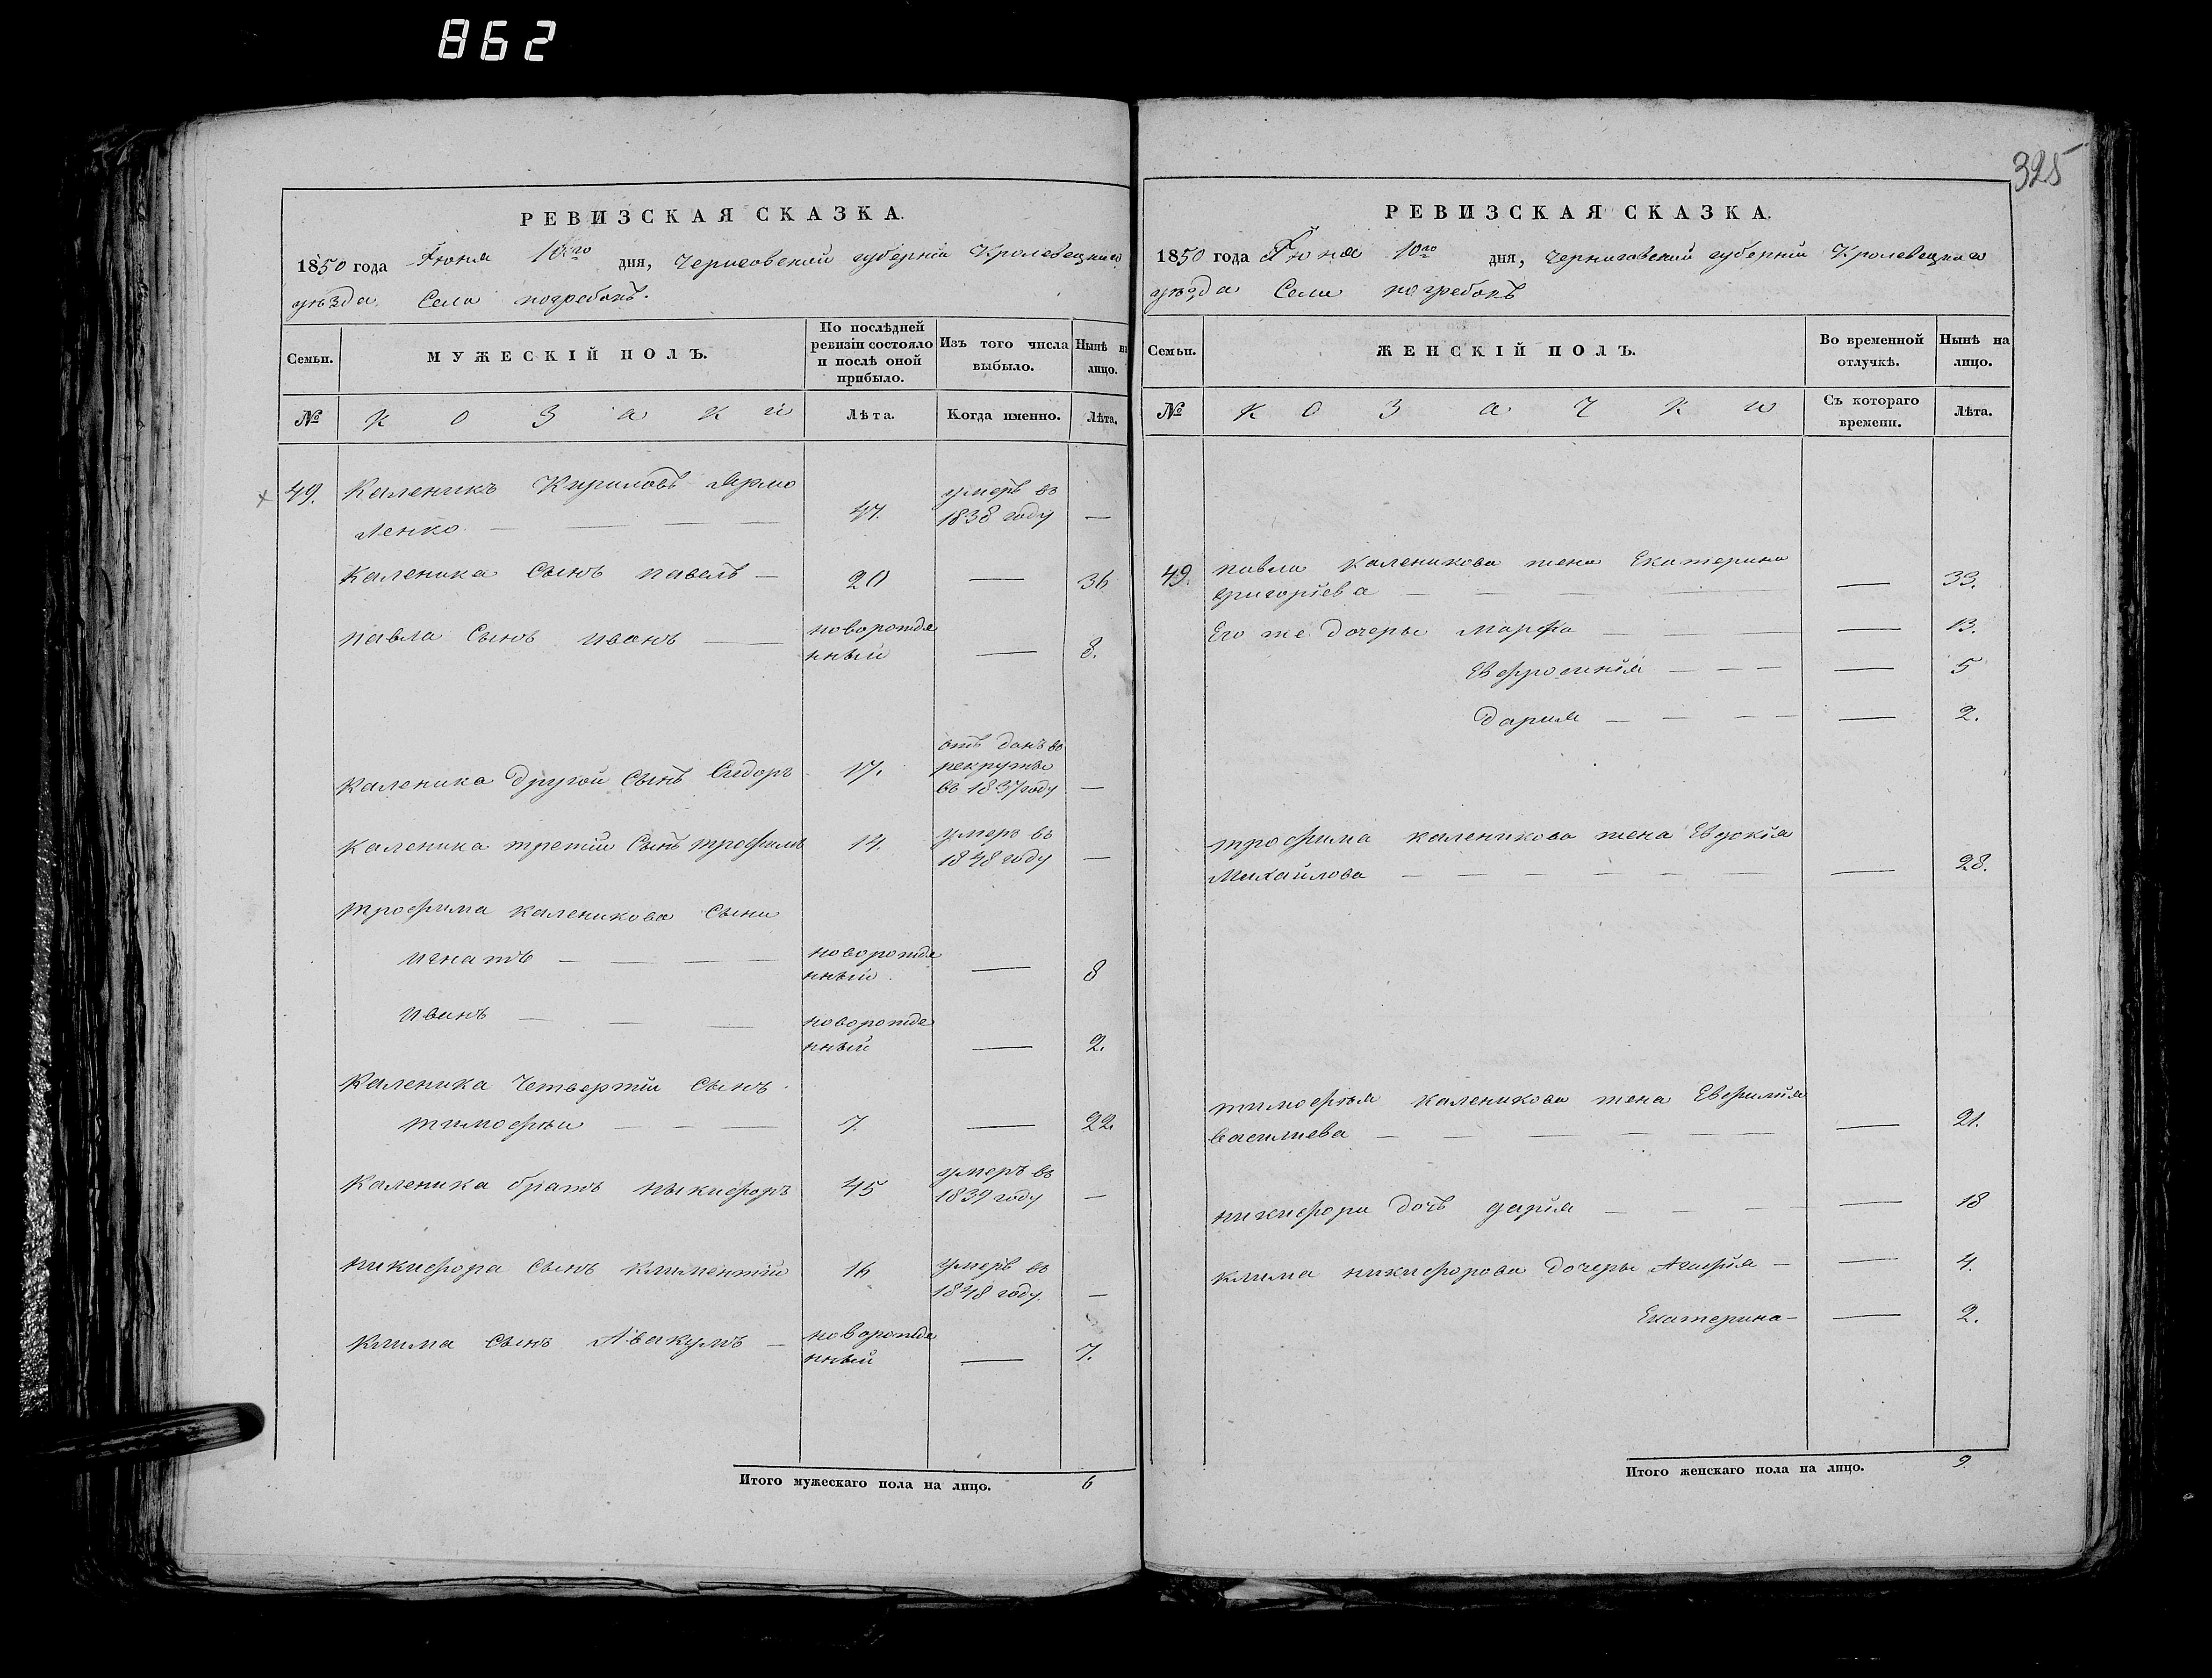 862
325
РЕВИЗСКАЯ СКАЗКА.
1850 года Іюня 10го дня, Черниговской губерніи Кролевецкаго
уѣзда Села погребокъ.
Семьи.
МУЖЕСКІЙ ПОЛЪ.
По послѣдней
ревизіи состояло
и послѣ оной
прибыло.
Изъ того числа
выбыло.
Нынѣ на
лицо.
№
Козаки
Лѣта.
Когда именно.
Лѣта.
49. Каленикъ Кириловъ Ярмо
ленко — 47. умеръ въ
1838 году —
Каленика Сынъ павелъ — 20 — 36
павла Сынъ иванъ — новорожде
нный — 8.
Каленика другой Сынъ Сидоръ 17. отъ данъ въ
рекруты
въ 1837 году —
Каленика третій Сынъ трофимъ 14. умеръ въ
1848 году —
трофима каленикова Сыни
игнатъ — новорожде
нный — 8
иванъ — новорожде
нный — 2.
Каленика Четвертій Сынъ
тимофѣи — 7. — 22.
Каленика братъ ныкифоръ 45 умеръ въ
1839 году —
никифора Сынъ климентій 16 умеръ въ
1848 году —
клима Сынъ Авакумъ — новорожде
нный — 7.
Итого мужескаго пола на лицо. 6
РЕВИЗСКАЯ СКАЗКА.
1850 года Іюня 10го дня, Черниговской губерніи Кролевецкаго
уѣзда Села погребокъ
Семьи.
ЖЕНСКІЙ ПОЛЪ.
Во временной
отлучкѣ.
Нынѣ на
лицо.
№
Козачки
Съ котораго
времени.
Лѣта.
49. павла Каленикова жена Екатерина
григоріева — — 33.
Его же дочеры марфа — — 13.
Евфросинія — — 5
дария — — 2.
трофима каленикова жена Евдокія
Михайлова — — 28.
тимофѣя каленикова жена Евфимія
василиева — — 21.
никифора дочъ дарія — — 18
клима никифорова дочеры Агафія — — 4.
Екатерина — — 2.
Итого женскаго пола на лицо. 9.